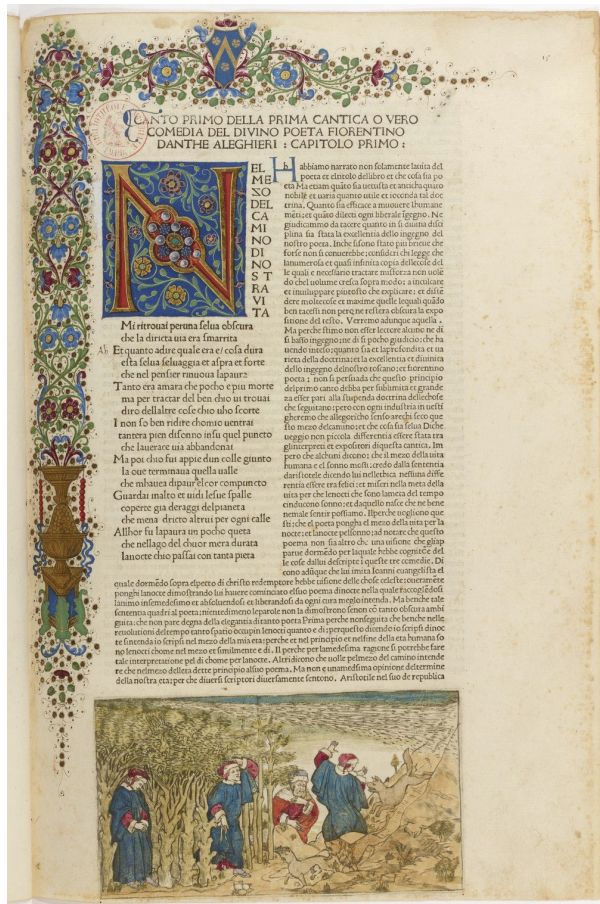 CANTO PRIMO DELLA PRIMA CANTICA O VERO
COMEDIA DEL DIVINO POETA FIORENTINO
DANTHE ALEGHIERI : CAPITOLO PRIMO :
N
EL
ME
ZO
DEL
CA
MI
NO
DI
NO
S
T
RA
VI
TA
Mi ritrouai peruna selua obscura
che la diricta uia era smarrita
Et quanto adire quale era e/ cosa dura
esta selua seluaggia et aspra et forte
che nel pensier rinuoua lapaura
Tanto era amara che pocho e piu morte
ma per tractar del ben chio ui trouai
diro dellaltre cose chio uho scorte
I non so ben ridire chomio uentrai
tantera pien disonno insu quel puncto
che lauerace uia abbandonai
Ma poi chio fui appie dun colle giunto
la oue terminaua quella ualle
che mhauea dipaurel cor compuncto
Guardai inalto et uidi lesue spalle
coperte gia deraggi delpianeta
che mena dricto altrui per ogni calle
Allhor fu lapaura un pocho queta
che nellago del chuor mera durata
lanocte chio passai con tanta pieta
H h abbiamo narrato non solamente lauita del
poeta et eltitolo dellibro et che cosa sia po
eta Ma etiam quãto sia uetusta et anticha quãto
nobile et uaria quanto utile et ioconda tal doc
trina. Quanto sia efficace a muouere lhumane
mẽti: et quãto dilecti ogni liberale ĩgegno. Ne
giudicammo da tacere quanto in si diuina disci
plina sia stata la excellentia dello ingegno del
nostro poeta. Inche sisono stato piu brieue che
forse non si conuerebbe: consideri chi legge che
lanumerosa et quasi infinita copia dellecose del
le quali e necessario tractare misforza non uolẽ
do chel uolume cresca sopra modo: a inculcare
et inuiluppare piutosto che explicare: et distẽ
dere moltecose et maxime quelle lequali quãdo
ben tacessi non perq̃ ne restera obscura la expo
sitione del testo. Verremo adunque aquella.
Ma perche stimo non esser lectore alcuno ne di
si basso ingegno: ne di si pocho giudicio: che ha
uendo inteso: quanto sia et laprofondita et ua
rieta della doctrina: et la excellentia et diuinita
dello ingegno delnostro toscano: et fiorentino
poeta: non si persuada che questo principio
del primo canto debba per sublimita et grande
za esser pari alla stupenda doctrina dellechose
che seguitano: pero con ogni industria in uesti
gheremo che allegoricho senso arechi seco que
sto mezo delcamino: et che cosa sia selua Diche
ueggio non piccola differentia essere stata tra
glinterpreti et expositori diquesta cantica. Im
pero che alchuni dicono: che il mezo della uita
humana e el sonno mossi: credo dalla sententia
daristotele dicendo lui nellethica nessuna diffe
rentia essere tra felici: et miseri nella meta della
uita per che lenocti che sono lameta del tempo
cinducono sonno: et daquello nasce che ne bene
nemale sentir possiamo. Ilperche uogliono que
sti: che el poeta pongha el mezo della uita per la
nocte: et lanocte pelsonno: ad notare che questo
poema non sia altro che una uisione che gliap
parue dormẽdo per laquale hebbe cognitiõe del
le cose dallui descripte i queste tre comedie. Di
cono adũque che lui imita Ioanni euangelista el
quale dormẽdo sopra elpecto di christo redemptore hebbe uisione delle chose celeste: oueramẽte
ponghi lanocte dimostrando lui hauere cominciato elsuo poema dinocte nella quale raccogliẽdosi
lanimo insemedesimo et absoluendosi et liberandosi da ogni cura meglo intenda. Ma benche tale
sententia quadri al poeta: nientedimeno leparole non la dimostrono senon cõ tanto obscura ambi
guita: che non pare degna della elegantia di tanto poeta Prima perche nonseguita che benche nelle
reuolutioni deltempo tanto spatio occupin lenocti quanto e di: per questo dicendo io scripsi dinoc
te sintenda io scripsi nel mezo della mia eta: perche et nel principio et nelfine della eta humana so
no lenocti chome nel mezo et similmente e di. Il perche per lamedesima ragione si potrebbe fare
tale interpretatione pel di chome per lanocte. Altri dicono che uolle pelmezo del camino intende
re che nelmezo delleta dette principio alsuo poema. Ma non e unamedesima opinione deltermine
della nostra eta: per che diuersi scriptori diuersamente sentono. Aristotile nel suo de republica